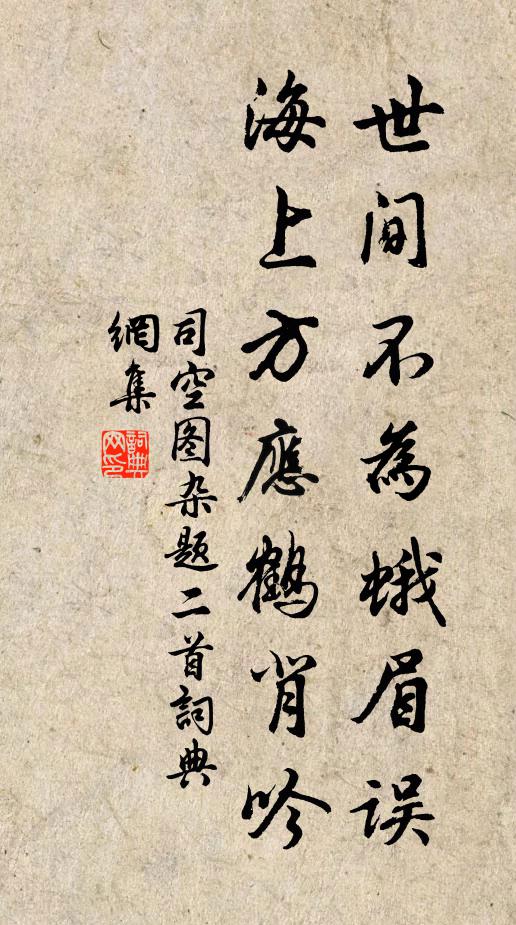 世间不為蛾眉误
海上方應鶴背吟
司空图杂题二首詞典
網集
詞典网印